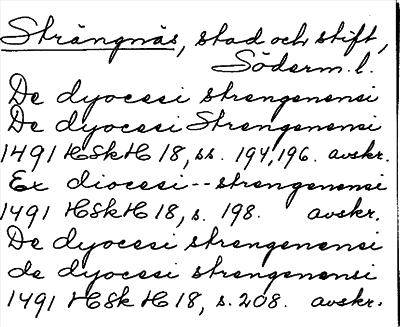 Strängnäs, stad och stift,
Söderm. l.
De dyocesi strengenensi
De dyocesi Strengenensi
1491 HSkH 18, ss. 194, 196. avskr.
Ex diocesi -- strengenensi
1491 HSkH 18, s. 198. avskr.
De dyocesi strengenensi
de dyocesi strengenensi
1491 HSkH 18, s. 208. avskr.